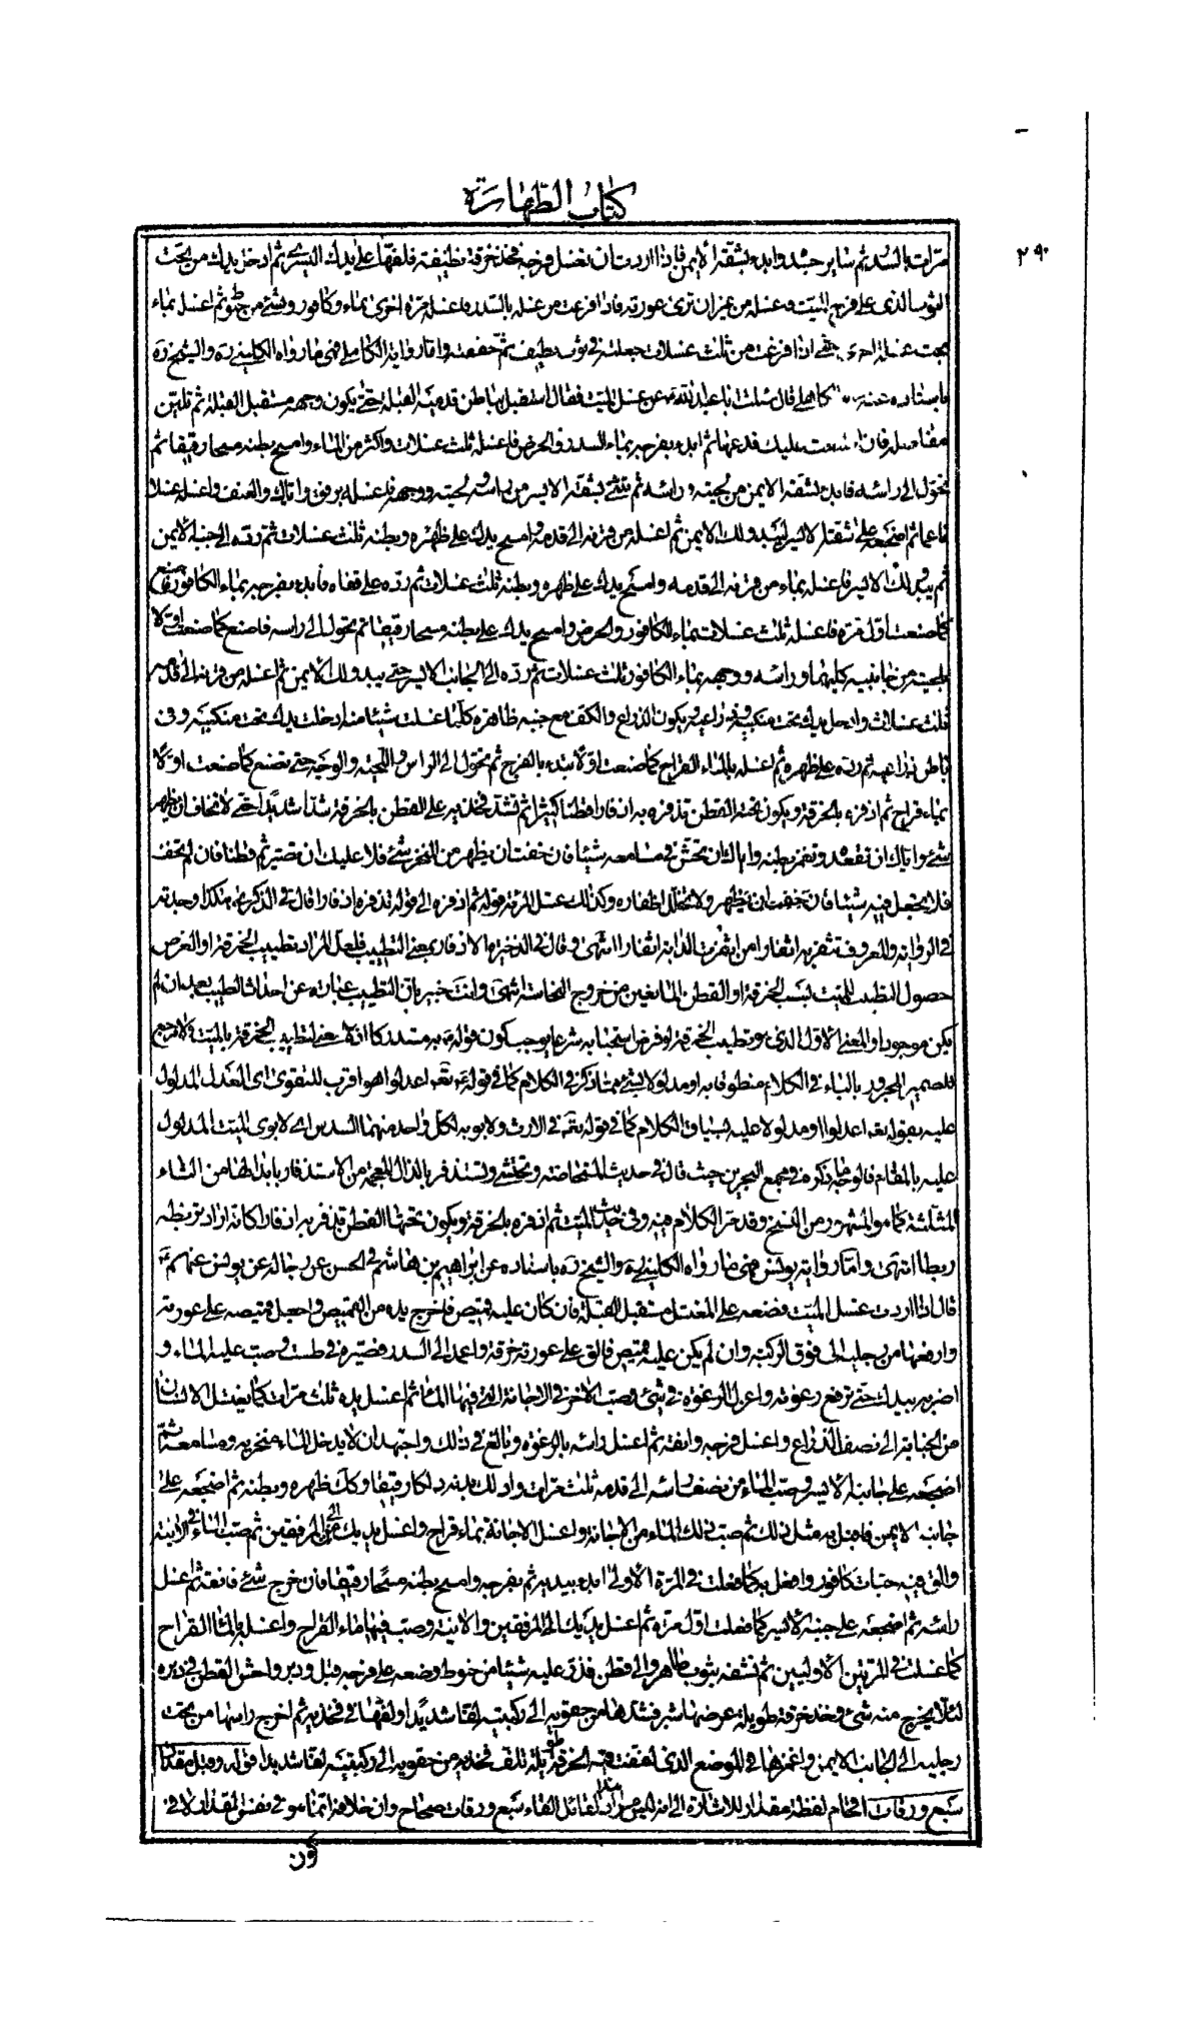 كتاب الطهارة
۲۹۰
مرات بالسدر ثم سائر جسده وابدء بشقه الايمن فاذا اردت ان تغسل فرجه فخذ خرقة نظيفة فلفها على يدك اليسرى ثم ادخل يدك من تحت
الثوب الذى على فرج الميت وغسله من غير ان ترى عورته فاذا فرغت من غسله بالسدر فاغسله مرة اخرى بماء وكافور وشئ من حنوط ثم اغسل بماء
بحت غسلة اخرى حتى اذا فرغت من ثلث غسلات جعلته فى ثوب نظيف ثم جففته واما رواية الكاهلى فهى ما رواه الكلينى ره والشيخ ره
باسناده عنه قال سئلت ابا عبد الله عن غسل الميت فقال استقبل بباطن قدميه القبلة حتى يكون وجهه مستقبل القبلة ثم تلين
مفاصله فان امتنعت عليك فدعها ثم ابدء بفرجه بماء السدر والحرض فاغسله ثلث غسلات واكثر من الماء وامسح بطنه مسحا رفيقا ثم
تحول الى راسه فابدء بشقه الايمن من لحيته وراسه ثم تثنى بشقه الايسر من راسه ولحيته ووجهه فاغسله برفق واياك والعنف واغسله غسلا
ناعما ثم اضجعه على شقه الايسر ليبدو لك الايمن ثم اغسله من قرنه الى قدمه وامسح يدك على ظهره وبطنه ثلث غسلات ثم رده الى جنبه الايمن
ثم يبدو لك الايسر فاغسله بماء من قرنه الى قدمه وامسح يدك على ظهره وبطنه ثلث غسلات ثم رده على قفاه فابدء بفرجه بماء الكافور فاصنع
كما صنعت اول مرة فاغسله ثلث غسلات بماء الكافور والحرض وامسح يدك على بطنه مسحا رفيقا ثم تحول الى راسه فاصنع كما صنعت اولا
بلحيته من جانبيه كليهما وراسه ووجهه بماء الكافور ثلث غسلات ثم رده الى الجانب الايسر حتى يبدو لك الايمن ثم اغسله من قرنه الى قدمه
ثلث غسلات وادخل يدك تحت منكبيه وذراعيه ويكون الذراع والكف مع جنبه ظاهرة كلما غسلت شيئا منه ادخلت يدك تحت منكبيه وفى
باطن ذراعيه ثم رده على ظهره ثم اغسله بالماء القراح كما صنعت اولا تبدء بالفرج ثم تحول الى الراس واللحية والوجه حتى تصنع كما صنعت اولا
بماء قراح ثم اذفره بالخرقة ويكون تحته القطن تذفره به اذفارا قطنا كثيرا ثم تشد فخذيه على القطن بالخرقة شدا شديدا حتى لا تخاف ان يظهر
شئ واياك ان تقعده وتغمز بطنه واياك ان تحش فى مسامعه شيئا فان خفت ان يظهر من المنخر شئ فلا عليك ان تصير ثم قطنا فان لم تخف
فلا تجعل فيه شيئا فان خفت ان يظهر ولا تخلل اظفاره وكذلك غسل المرئة قوله ثم اذفره الى قوله تذفره اذفارا قال فى الذكرى هكذا وجد ته
فى الرواية والمعروف تثفر به اثفارا من اثفرت الدابة اثفارا انتهى وقال فى الذخيرة الاذفار بمعنى التطييب فلعل المراد تطييب الخرقة او الغرض
حصول التطيب للميت بسبب الخرقة او القطن المانعين من خروج النجاسة انتهى وانت خبير بان التطييب عبارة عن احداث الطيب بعد ان لم
يكن موجودا والمعنى الاول الذى هو تطييب الخرقة لو فرض استحبابه شرعا يوجب كون قوله به مستدركا اذ لا معنى لتطييب الخرقة بالميت ولا مرجع
للضمير المجرور بالباء فى الكلام منطوقا به او مدلولا لشئ مما ذكر فى الكلام كما فى قوله تعه اعدلوا هو اقرب للتقوى اى العدل المدلول
عليه بقوله تعه اعدلوا او مدلولا عليه بسياق الكلام كما فى قوله تعه فى الارث ولابويه لكل واحد منهما السدس اى لابوى الميت المدلول
عليه بالمقام فالوجه ما ذكره فى مجمع البحرين حيث قال فى حديث المستحاضة وتحتشى وتستذفر بالذال المعجمة من الاستذفار بابدالها من الثاء
المثلثة كما هو المشهور من النسخ وقد مر الكلام فيه وفى حديث الميت ثم اذفره بالخرقة ويكون تحتها القطن تذفر به اذفارا كانه اراد تربطه
ربطا انتهى واما رواية يونس فهى ما رواه الكلينى ره والشيخ ره باسناده عن ابراهيم بن هاشم فى الحسن عن رجاله عن يونس عنهم
قال اذا اردت غسل الميت فضعه على المغتسل مستقبل القبلة فان كان عليه قميص فاخرج يده من القميص واجعل قميصه على عورته
وارفعها من رجليه الى فوق الركبة وان لم يكن عليه قميص فالق على عورته خرقة واعمد الى السدر فصيره فى طست وصب عليه الماء و
اضربه بيدك حتى ترفع رغوته واعزل الرغوة فى شئ وصب الاخر فى الاجانة التى فيها الماء ثم اغسل يده ثلث مرات كما يغتسل الانسان
من الجنابة الى نصف الذراع واغسل فرجه وانقه ثم اغسل راسه بالرغوة وبالغ فى ذلك واجتهد ان لا يدخل الماء منخريه ومسامعه ثم
اضجعه على جانبه الايسر وصب الماء من نصف راسه الى قدمه ثلث مرات وادلك بدنه دلكا رفيقا وكك ظهره وبطنه ثم اضجعه على
جانبه الايمن فافعل به مثل ذلك ثم صب ذلك الماء من الاجانة واغسل الاجانة بماء قراح واغسل يديك الى المرفقين ثم صب الماء فى الانية
والق فيه حبات كافور وافعل به كما فعلت فى المرة الاولى ابدء بيديه ثم بفرجه وامسح بطنه مسحا رفيقا فان خرج شئ فانقه ثم اغسل
راسه ثم اضجعه على جنبه الايسر كما فعلت اول مرة ثم اغسل يديك الى المرفقين والانية وصب فيها ماء القراح واغسله بالماء القراح
كما غسلت فى المرتين الاوليين ثم نشفه بثوب طاهر والى قطن فذر عليه شيئا من حنوط وضعه على فرجه قبل ودبر واحش القطن فى دبره
لئلا يخرج منه شئ وخذ خرقة طويلة عرضها شبر فشدها من حقويه الى ركبتيه لفا شديدا ولفها فى فخذيه ثم اخرج راسها من تحت
رجليه الى الجانب الايمن واغمزها فى الموضع الذى لففت فيه الخرقة طويلة تلف فخذيه من حقويه الى ركبتيه لفا شديدا قوله وقيل مقدار
سبع ورقات اقحام لفظة مقدار للاشارة الى انه ليس مراد القائل القاء سبع ورقات صحاح وان خلافه انما هو فى نفس المقدار لا فى
كون